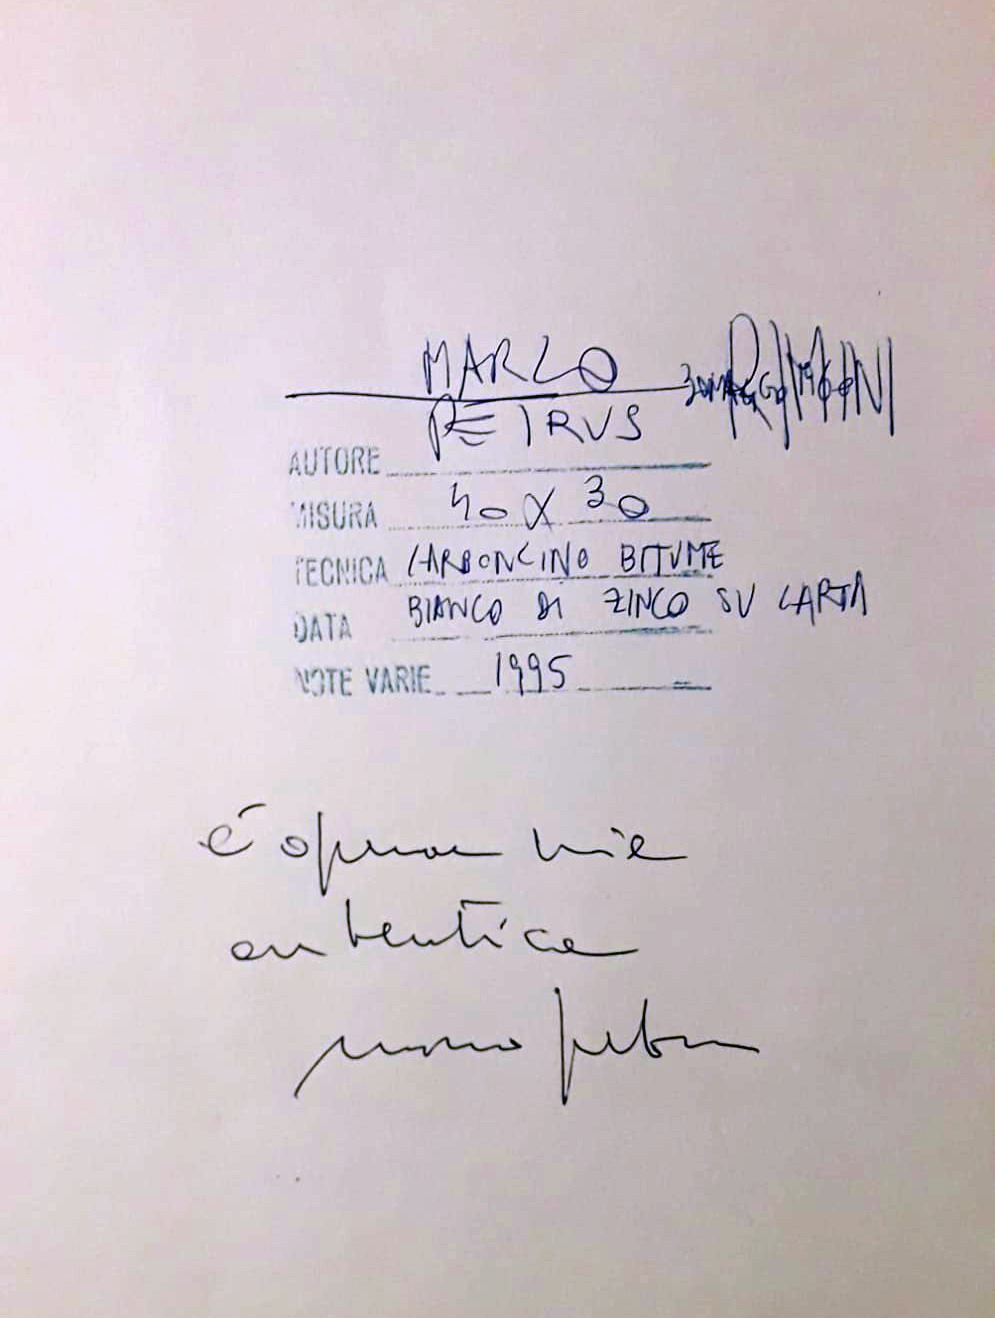 MARCO
AUTORE PETRUS
MISURA 40 X 30
TECNICA CARBONCINO BITUME
DATA BIANCO DI ZINCO SU CARTA
NOTE VARIE 1995
è opera mia
autentica